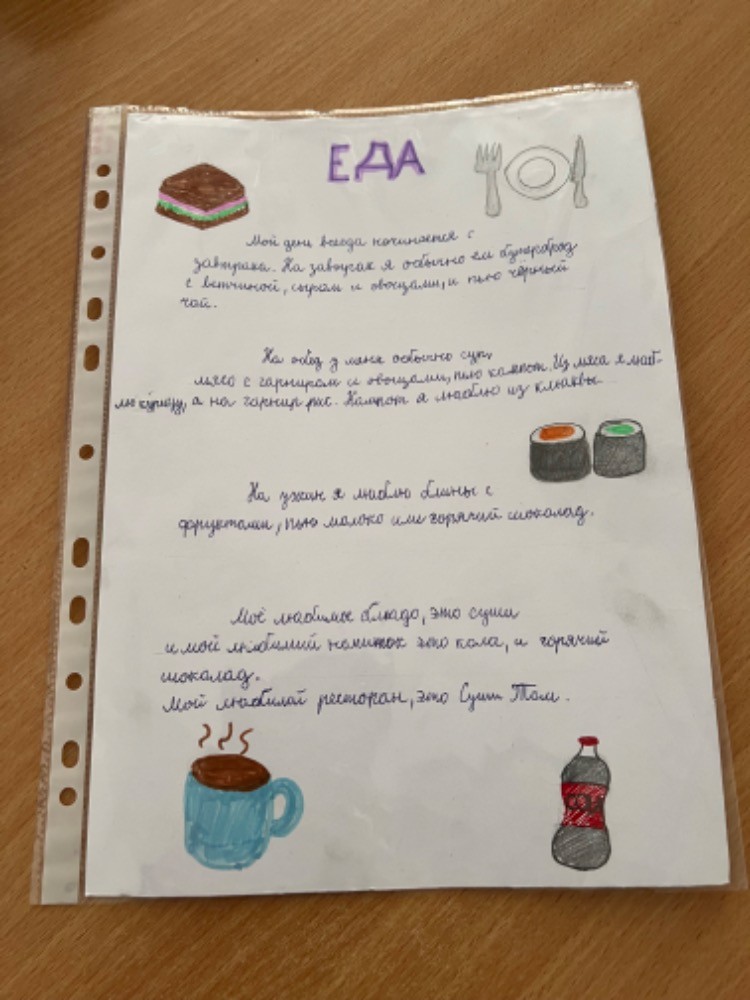 ЕДА
Мой день всегда начинается с
завтрака. На завтрак я обычно ем бутерброд
с ветчиной, сыром и овощами, и пью чёрный
чай.
На обед у меня обычно суп,
мясо с гарниром и овощами, пью компот. Из мяса я люб-
лю курицу, а на гарнир рис. Компот я люблю из клюквы
На ужин я люблю блины с
фруктами, пью молоко или горячий шоколад.
Моё любимое блюдо, это суши
и мой любимий напиток это кола, и горячий
шоколад.
Мой любимый ресторан, это Суши Том.